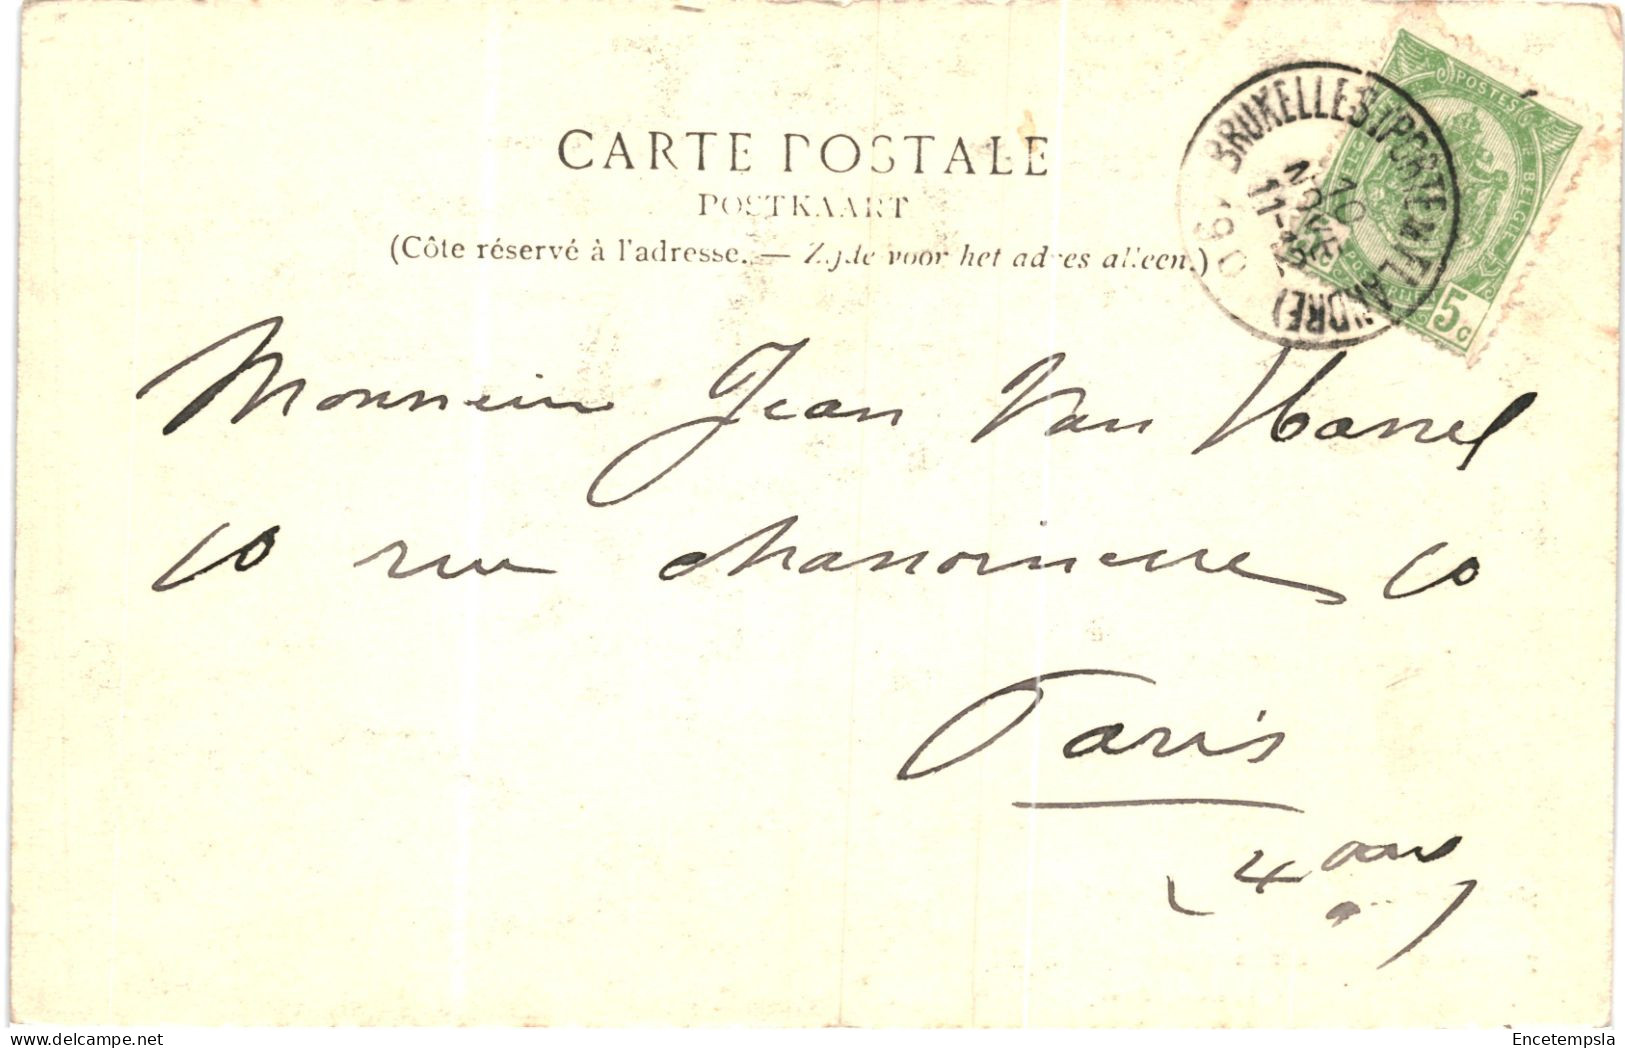 CARTE POSTALE
POSTKAART
(Côte réservé à l'adresse. — Zijde voor het adres alleen.)
BRUXELLES (PORTE DE FLANDRE)
10
NOVE
11-12
POSTES
BELGIE
5 c
Monsieur Jean Van Hassel
10 rue Chanoinesse 10
Paris
(4 ans)
Encetempsla